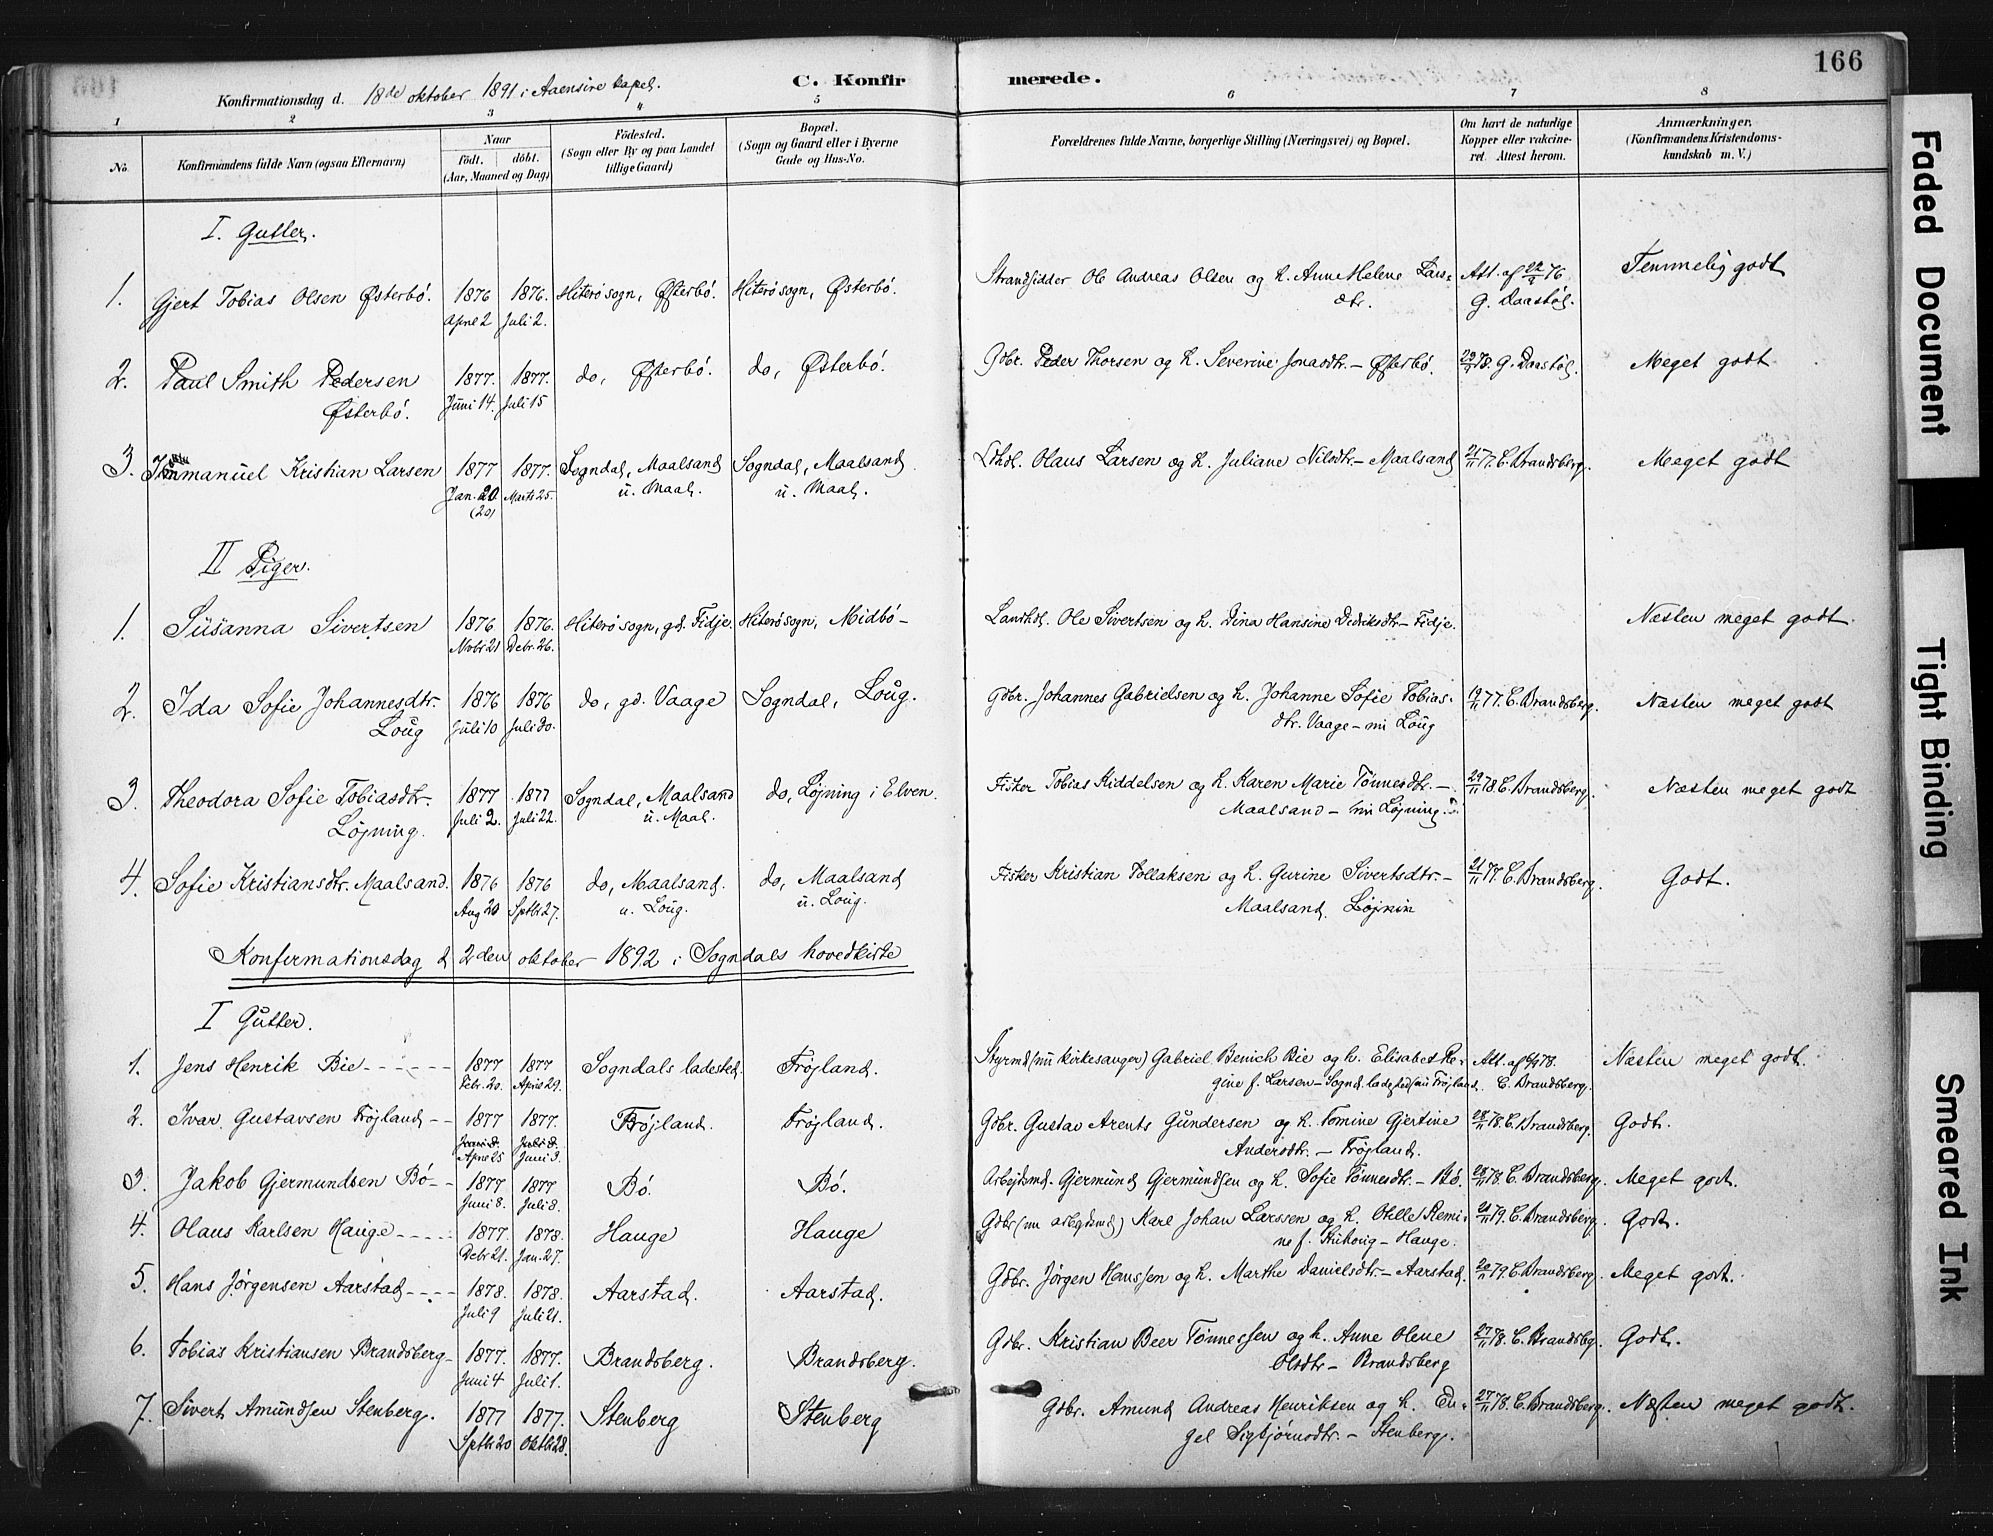 166
C. Konfirmerede.
Konfirmationsdag d. 18de oktober 1891 i Aaensire kapel.
1 2 3 4 5 6 7 8
No.
Konfirmandens fulde Navn (ogsaa Efternavn)
Naar
født. døbt.
(Aar, Maaned og Dag)
Fødested.
(Sogn eller By og paa Landet
tillige Gaard)
Bopæl.
(Sogn og Gaard eller i Byerne
Gade og Hus-No.
Forældrenes fulde Navne, borgerlige Stilling (Næringsvei) og Bopæl.
Om havt de naturlige
Kopper eller vakcine-
ret. Attest herom.
Anmærkninger.
(Konfirmandens Kristendoms-
kundskab m. V.)
I. Gutter.
1. Gjert Tobias Olsen Østerbø. 1876 April 2 1876. Juli 2. Hiterø sogn, Østerbø. Hiterø sogn, Østerbø. Strandsidder Ole Andreas Olsen og h. Anne Helene Lars-
dtr. Att. af 22/9 76 G. Daastøl. Temmelig godt
2. Paul Smith Pedersen
Østerbø. 1877. Juni 14. 1877. Juli 15 do, Østerbø. do, Østerbø. Gdbr. Peder Thorsen og h. Severine Jonasdtr. – Østerbø. 78. G. Daastøl. Meget godt
3. Immanuel Kristian Larsen 1877 Jan. 20 (20) 1877. Marts 25. Sogndal, Maalsand
u. Maal. Sogndal, Maalsand
u. Maal. Olaus Larsen og h. Juliane Nilsdtr. – Maalsand 21/11 77. C. Brandsberg. Meget godt
II Piger.
1. Susanna Sivertsen 1876 Novbr 21 1876. Debr. 26. Hiterø sogn, gd. Fidje. Hiterø sogn, Midbø – Ole Sivertsen og h. Dina Hansine Dediksdtr – Fidje. Næsten meget godt.
2. Ida Sofie Johannesdtr.
Loug 1876 Juli 10 1876 Juli 30. do, gd. Vaage Sogndal, Loug. Gdbr. Johannes Gabrielsen og h. Johanne Sofie Tobias-
dtr. Vaage – nu Loug 19/11 77. C. Brandsberg. Næsten meget godt
3. Theodora Sofie Tobiasdtr.
Løjning. 1877 Juli 2. 1877 Juli 22. Sogndal, Maalsand
u. Maal. do, Løjning i Elven. Fisker Tobias Kiddelsen og h. Karen Marie Tønnesdtr. –
Maalsand – nu Løjning. 29/11 78. C. Brandsberg. Næsten meget godt
4. Sofie Kristiansdtr. Maalsand. 1876 Aug 20 1876 Sptbr 27. do, Maalsand.
u. Loug. do, Maalsand
u. Loug. Fisker Kristian Tollaksen og h. Gurine Sivertsdtr. –
Maalsand. Løjnin 21/11 77. C. Brandsberg. Godt.
Konfirmationsdag d 2den oktober 1892 i Sogndals hovedkirke
I Gutter.
1. Jens Henrik Bie - - - - - - 1877 Febr. 20. 1877 April 29. Sogndals ladested. Frøjland. Styrmd (nu kirkesanger) Gabriel Benich Bie og h. Elisabet Re-
gine f. Larsen – Sognd. ladested nu Frøjland. Att. af 78. C. Brandsberg. Næsten meget godt.
2. Ivar Gustavsen Frøjland - - 1877 April 25 1877. Juni 3. Frøjland. Frøjland. Gdbr. Gustav Arents Gundersen og h. Tomine Gjertine
Andersdtr. – Frøjland. 28/11 78. C. Brandsberg. Godt.
3. Jakob Gjermundsen Bø - - 1877 Juni 8. 1877 Juli 8. Bø. Bø. Arbejdsmd. Gjermund Gjermundsen og h. Sofie Tønnesdtr. – Bø. 28/11 78. C. Brandsberg. Meget godt.
4. Olaus Karlsen Hauge - - - - 1877. Debr 21. 1878. Jan. 27. Hauge Hauge Gdbr (nu arbejdsmd) Karl Johan Larssen og h. Otille Remi-
ne f. – Hauge. 21/11 79. C. Brandsberg. Godt.
5. Hans Jørgensen Aarstad - - - - 1878. Juli 9 1878. Juli 21. Aarstad. Aarstad. Gdbr. Jørgen Hanssen og h. Marthe Danielsdtr. – Aarstad. 20/11 79. C. Brandsberg. Meget godt.
6. Tobias Kristiansen Brandsberg – 1877. Juni 4 1877. Juli 1. Brandsberg. Brandsberg. Gdbr. Kristian Beer Tønnessen og h. Anne Olene
Olsdtr – Brandsberg 27/11 78. C. Brandsbg. Godt.
7. Sivert Amundsen Stenberg. 1877 Sptbr 20 1877. Oktbr 28. Stenberg Stenberg Gdbr. Amund Andreas Henriksen og h. En-
gel Sigbjørnsdtr. – Stenberg. 27/11 78. C. Brandsberg. Næsten meget godt.
Faded Document
Tight Binding
Smeared Ink